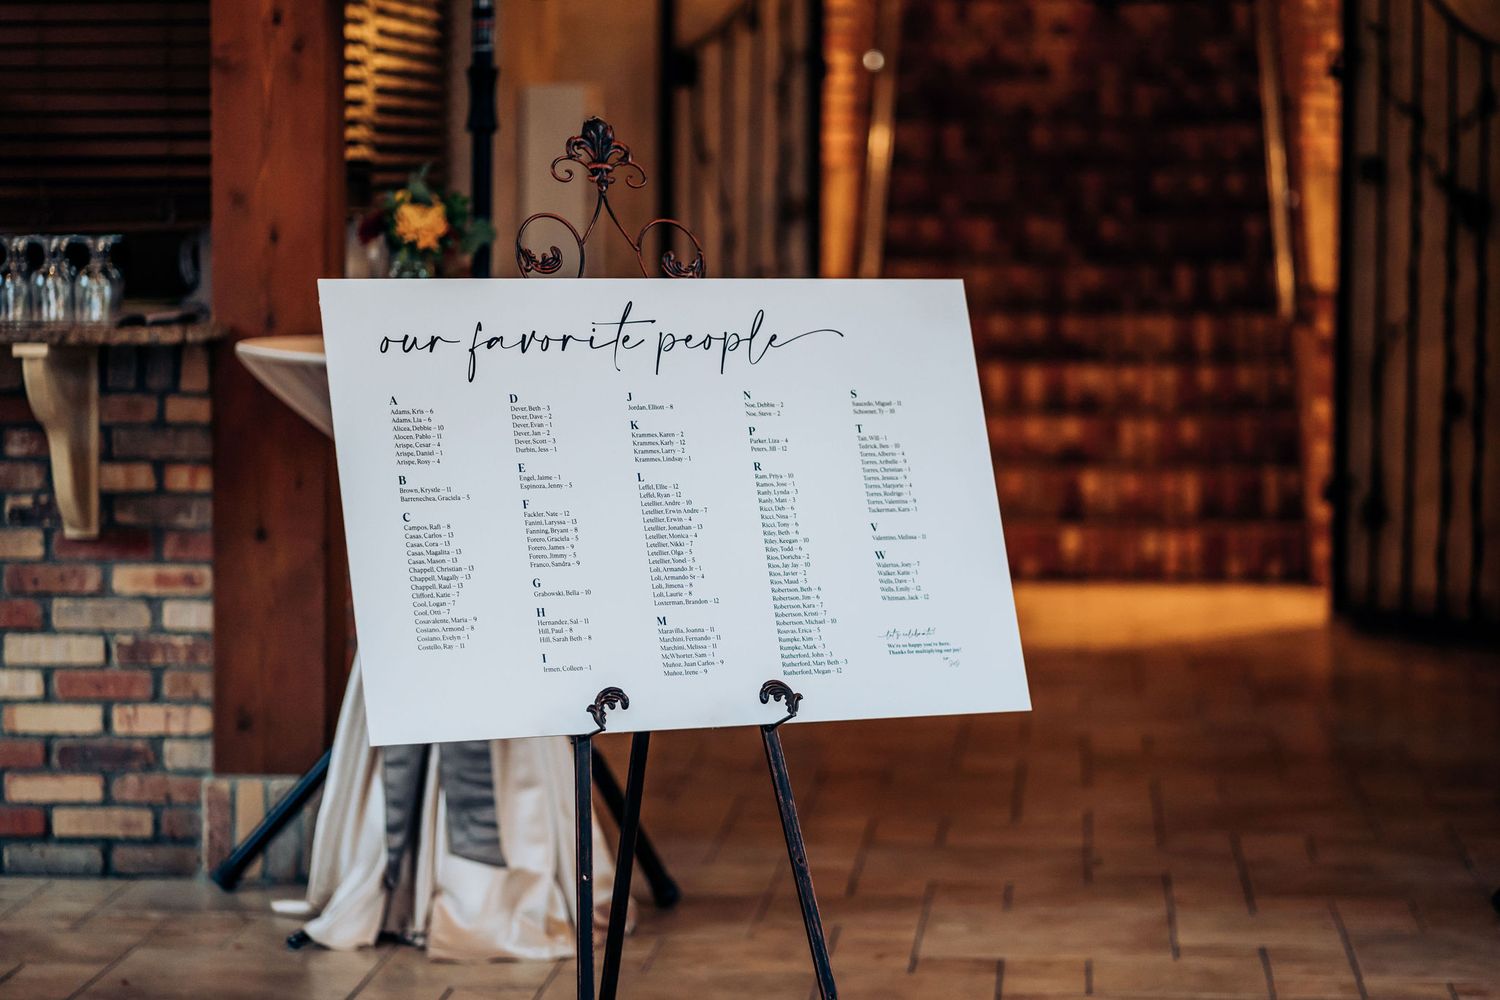 our favorite people
A
Adams, Kris – 6
Adams, Lia – 6
Alicea, Debbie – 10
Alocen, Pablo – 11
Arispe, Cesar – 4
Arispe, Daniel – 1
Arispe, Rosy – 4
B
Brown, Krystle – 11
Barrenechea, Graciela – 5
C
Campos, Rafi – 8
Casas, Carlos – 13
Casas, Cora – 13
Casas, Magalita – 13
Casas, Mason – 13
Chappell, Christian – 13
Chappell, Magally – 13
Chappell, Raul – 13
Clifford, Katie – 7
Cool, Logan – 7
Cool, Otti – 7
Cosavalente, Maria – 9
Cosiano, Armond – 8
Cosiano, Evelyn – 1
Costello, Ray – 11
D
Dever, Beth – 3
Dever, Dave – 2
Dever, Evan – 1
Dever, Jan – 2
Dever, Scott – 3
Durbin, Jess – 1
E
Engel, Jaime – 1
Espinoza, Jenny – 5
F
Fackler, Nate – 12
Fanini, Laryssa – 13
Fanning, Bryant – 8
Forero, Graciela – 5
Forero, James – 9
Forero, Jimmy – 5
Franco, Sandra – 9
G
Grabowski, Bella – 10
H
Hernandez, Sal – 11
Hill, Paul – 8
Hill, Sarah Beth – 8
I
Irmen, Colleen – 1
J
Jordan, Elliott – 8
K
Krammes, Karen – 2
Krammes, Karly – 12
Krammes, Larry – 2
Krammes, Lindsay – 1
L
Leffel, Ellie – 12
Leffel, Ryan – 12
Letellier, Andre – 10
Letellier, Erwin Andre – 7
Letellier, Erwin – 4
Letellier, Jonathan – 13
Letellier, Monica – 4
Letellier, Nikki – 7
Letellier, Olga – 5
Letellier, Yonel – 5
Loli, Armando Jr – 1
Loli, Armando Sr – 4
Loli, Jimena – 8
Loli, Laurie – 8
Loxterman, Brandon – 12
M
Maravilla, Joanna – 11
Marchini, Fernando – 11
Marchini, Melissa – 11
McWhorter, Sam – 1
Muñoz, Juan Carlos – 9
Muñoz, Irene – 9
N
Noe, Debbie – 2
Noe, Steve – 2
P
Parker, Liza – 4
Peters, Jill – 12
R
Ram, Priya – 10
Ramos, Jose – 1
Ranly, Lynda – 3
Ranly, Matt – 3
Ricci, Deb – 6
Ricci, Nina – 7
Ricci, Tony – 6
Riley, Beth – 6
Riley, Keegan – 10
Riley, Todd – 6
Rios, Doricha – 2
Rios, Jay Jay – 10
Rios, Javier – 2
Rios, Maud – 5
Robertson, Beth – 6
Robertson, Jim – 6
Robertson, Kara – 7
Robertson, Kristi – 7
Robertson, Michael – 10
Rouvas, Erica – 5
Rumpke, Kim – 3
Rumpke, Mark – 3
Rutherford, John – 3
Rutherford, Mary Beth – 3
Rutherford, Megan – 12
S
Saucedo, Miguel – 11
Schoener, Ty – 10
T
Tan, Will – 1
Tedrick, Ben – 10
Torres, Alberto – 4
Torres, Aribelle – 9
Torres, Christian – 1
Torres, Jessica – 9
Torres, Marjorie – 4
Torres, Rodrigo – 1
Torres, Valentina – 9
Tuckerman, Kara – 1
V
Valentino, Melissa – 11
W
Walerius, Joey – 7
Walker, Katie – 1
Wells, Dave – 1
Wells, Emily – 12
Whitman, Jack – 12
let's celebrate!
We're so happy you're here.
Thanks for multiplying our joy!